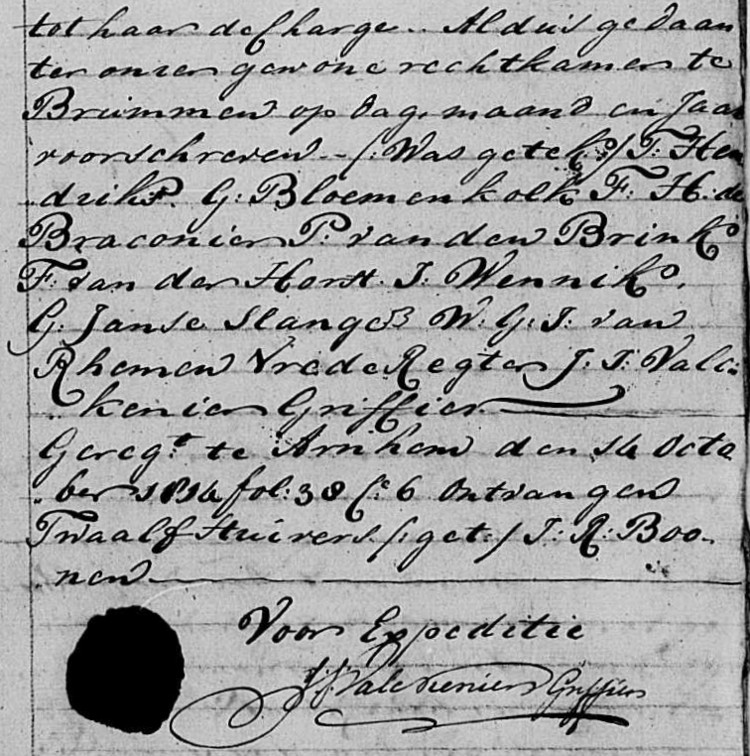 tot haar decharge.. Aldus gedaan
ter onzer gewone rechtkamer te
Brummen op dag, maand en Jaar
voorschreven -- /: Was getek:/ T: Hen
driks. G: Bloemenkolk F: H: de
Braconier P: van den Brink
F: van der Horst. J: Wennik.
G: Janse Slanger W: G: J: van
Rhemen Vrede Regter J: J: Valc
kenier Griffier.
Geregt te Arnhem den 14 Octo
ber 1814 fol: 38 Ce 6 Ontvangen
Twaalf Stuivers /: get:/ J: R: Boo.
nen
Voor Expeditie
J: J: Valckenier Griffier